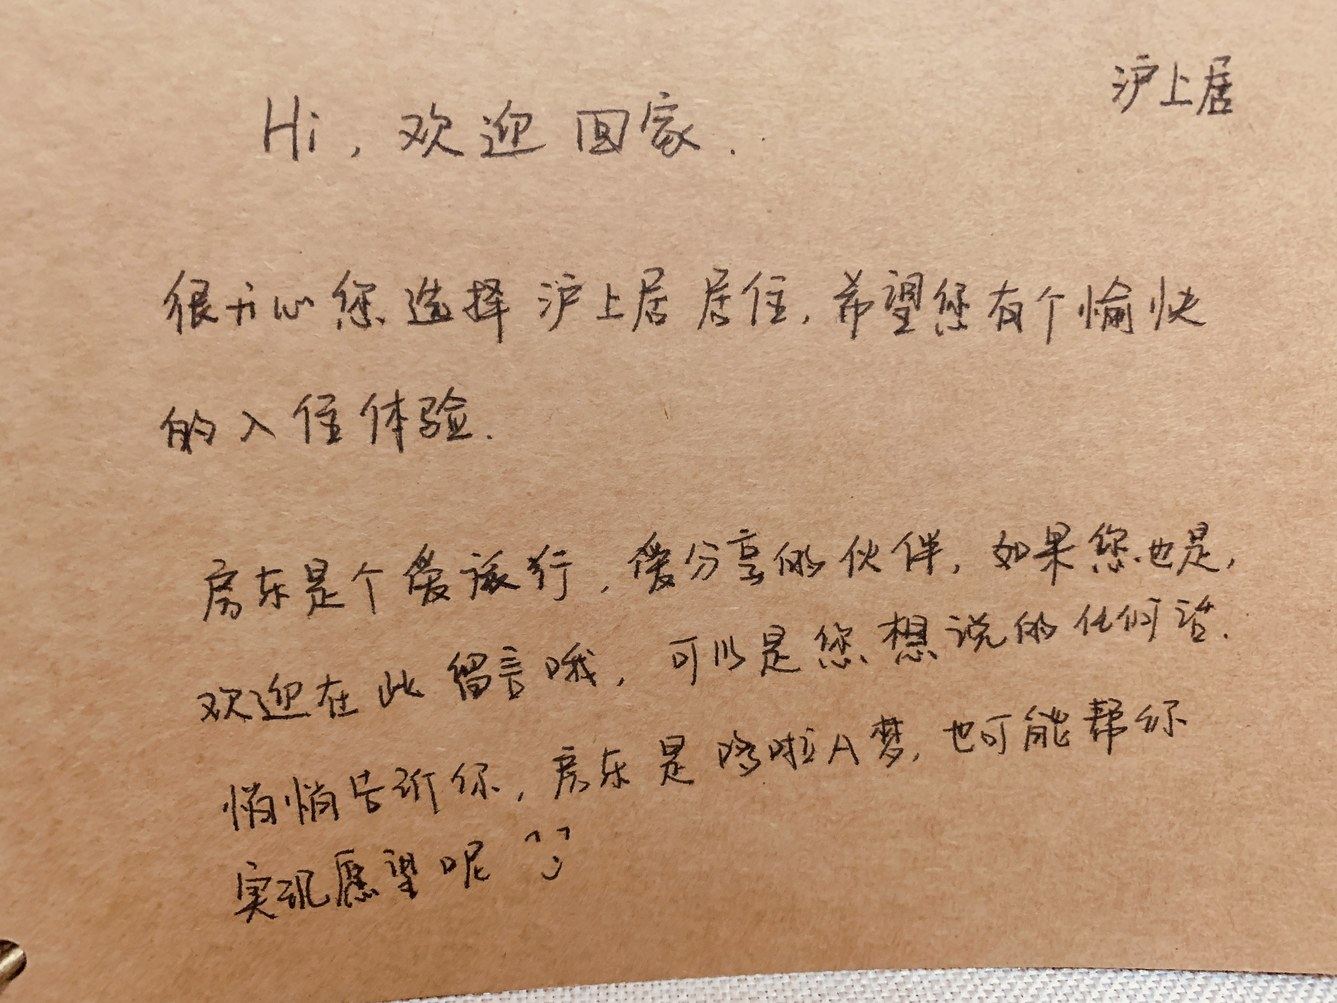 沪上居
Hi, 欢迎回家.
很开心您选择沪上居居住, 希望您有个愉快
的入住体验.
房东是个爱旅行, 爱分享的伙伴, 如果您也是,
欢迎在此留言哦, 可以是您想说的任何话.
悄悄告诉你, 房东是哆啦A梦, 也可能帮你
实现愿望呢